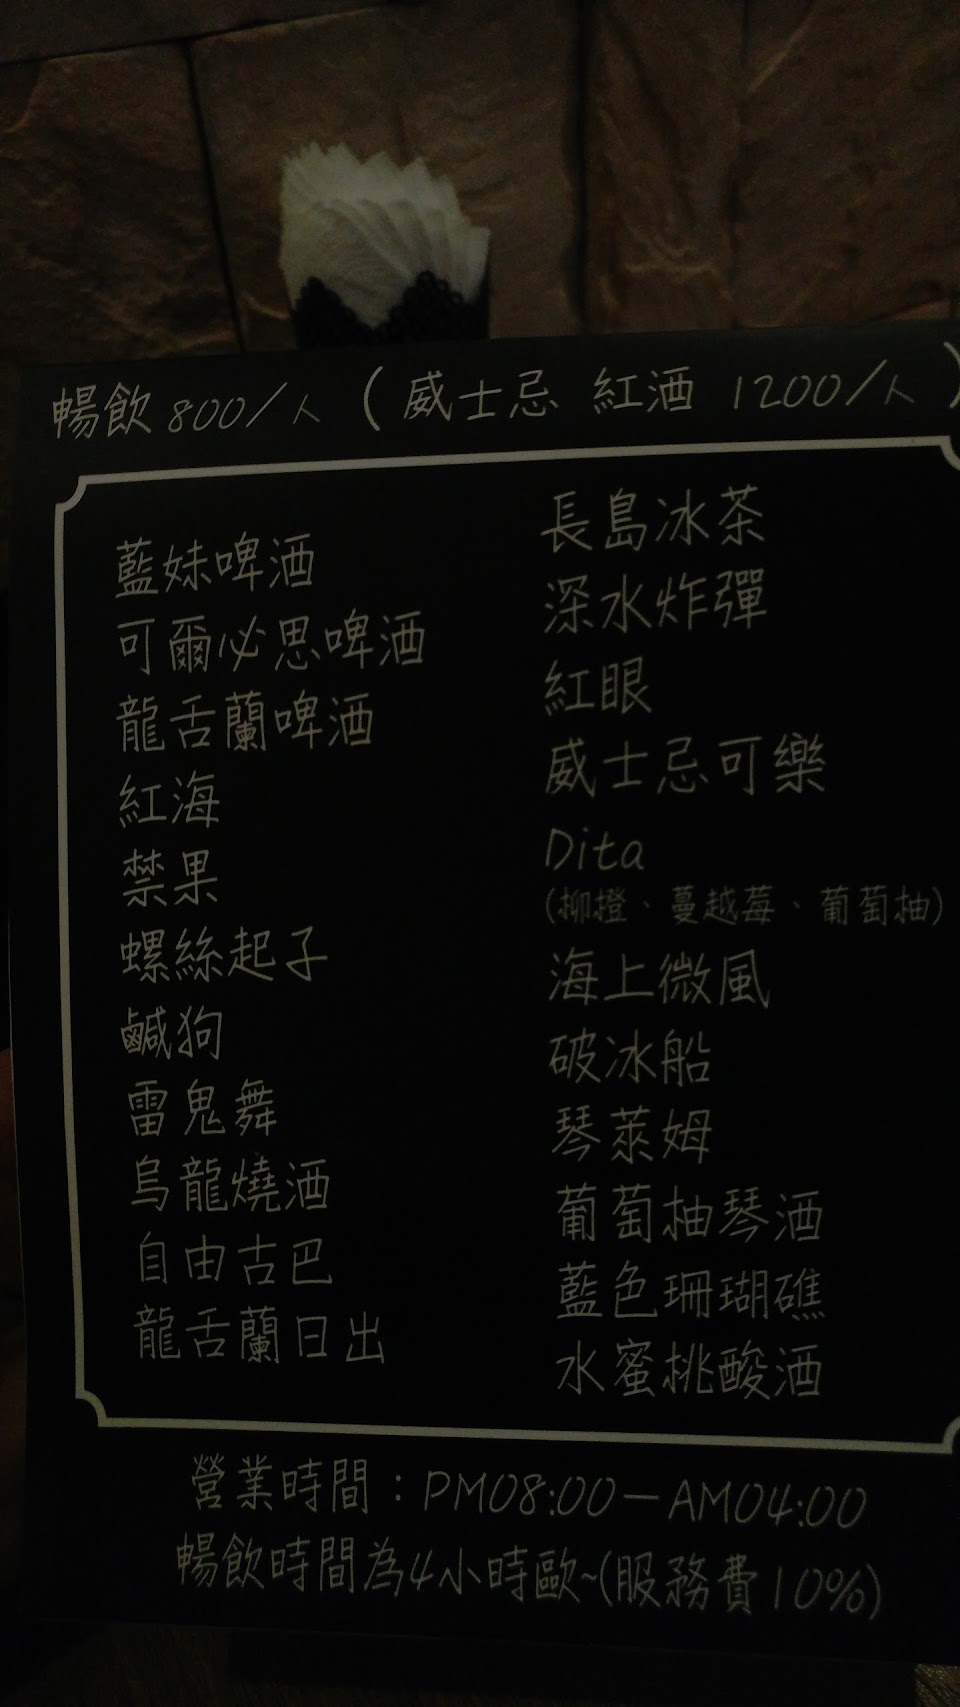 暢飲 800/人 (威士忌 紅酒 1200/人)
藍妹啤酒
可爾必思啤酒
龍舌蘭啤酒
紅海
禁果
螺絲起子
鹹狗
雷鬼舞
烏龍燒酒
自由古巴
龍舌蘭日出
長島冰茶
深水炸彈
紅眼
威士忌可樂
Dita
(柳橙、蔓越莓、葡萄柚)
海上微風
破冰船
琴萊姆
葡萄柚琴酒
藍色珊瑚礁
水蜜桃酸酒
營業時間：PM08:00－AM04:00
暢飲時間為4小時歐~(服務費10%)